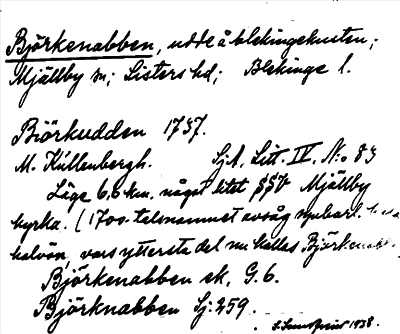 Björkenabben, udde å blekingekusten;
Mjällby sn; Listers hd; Blekinge l.
Biörkudden 1737.
M. Küllenbergh. Sj.A. Litt. IV. No 83
Läge 6,8 km. något litet SSV Mjällby
kyrka. (1700-talsnamnet avsåg uppbarl. hela
halvön, vars yttersta del nu kallas Björkenabb.
Björkenabben ek. G. 6.
Björknabben Sj. 259.
1938.